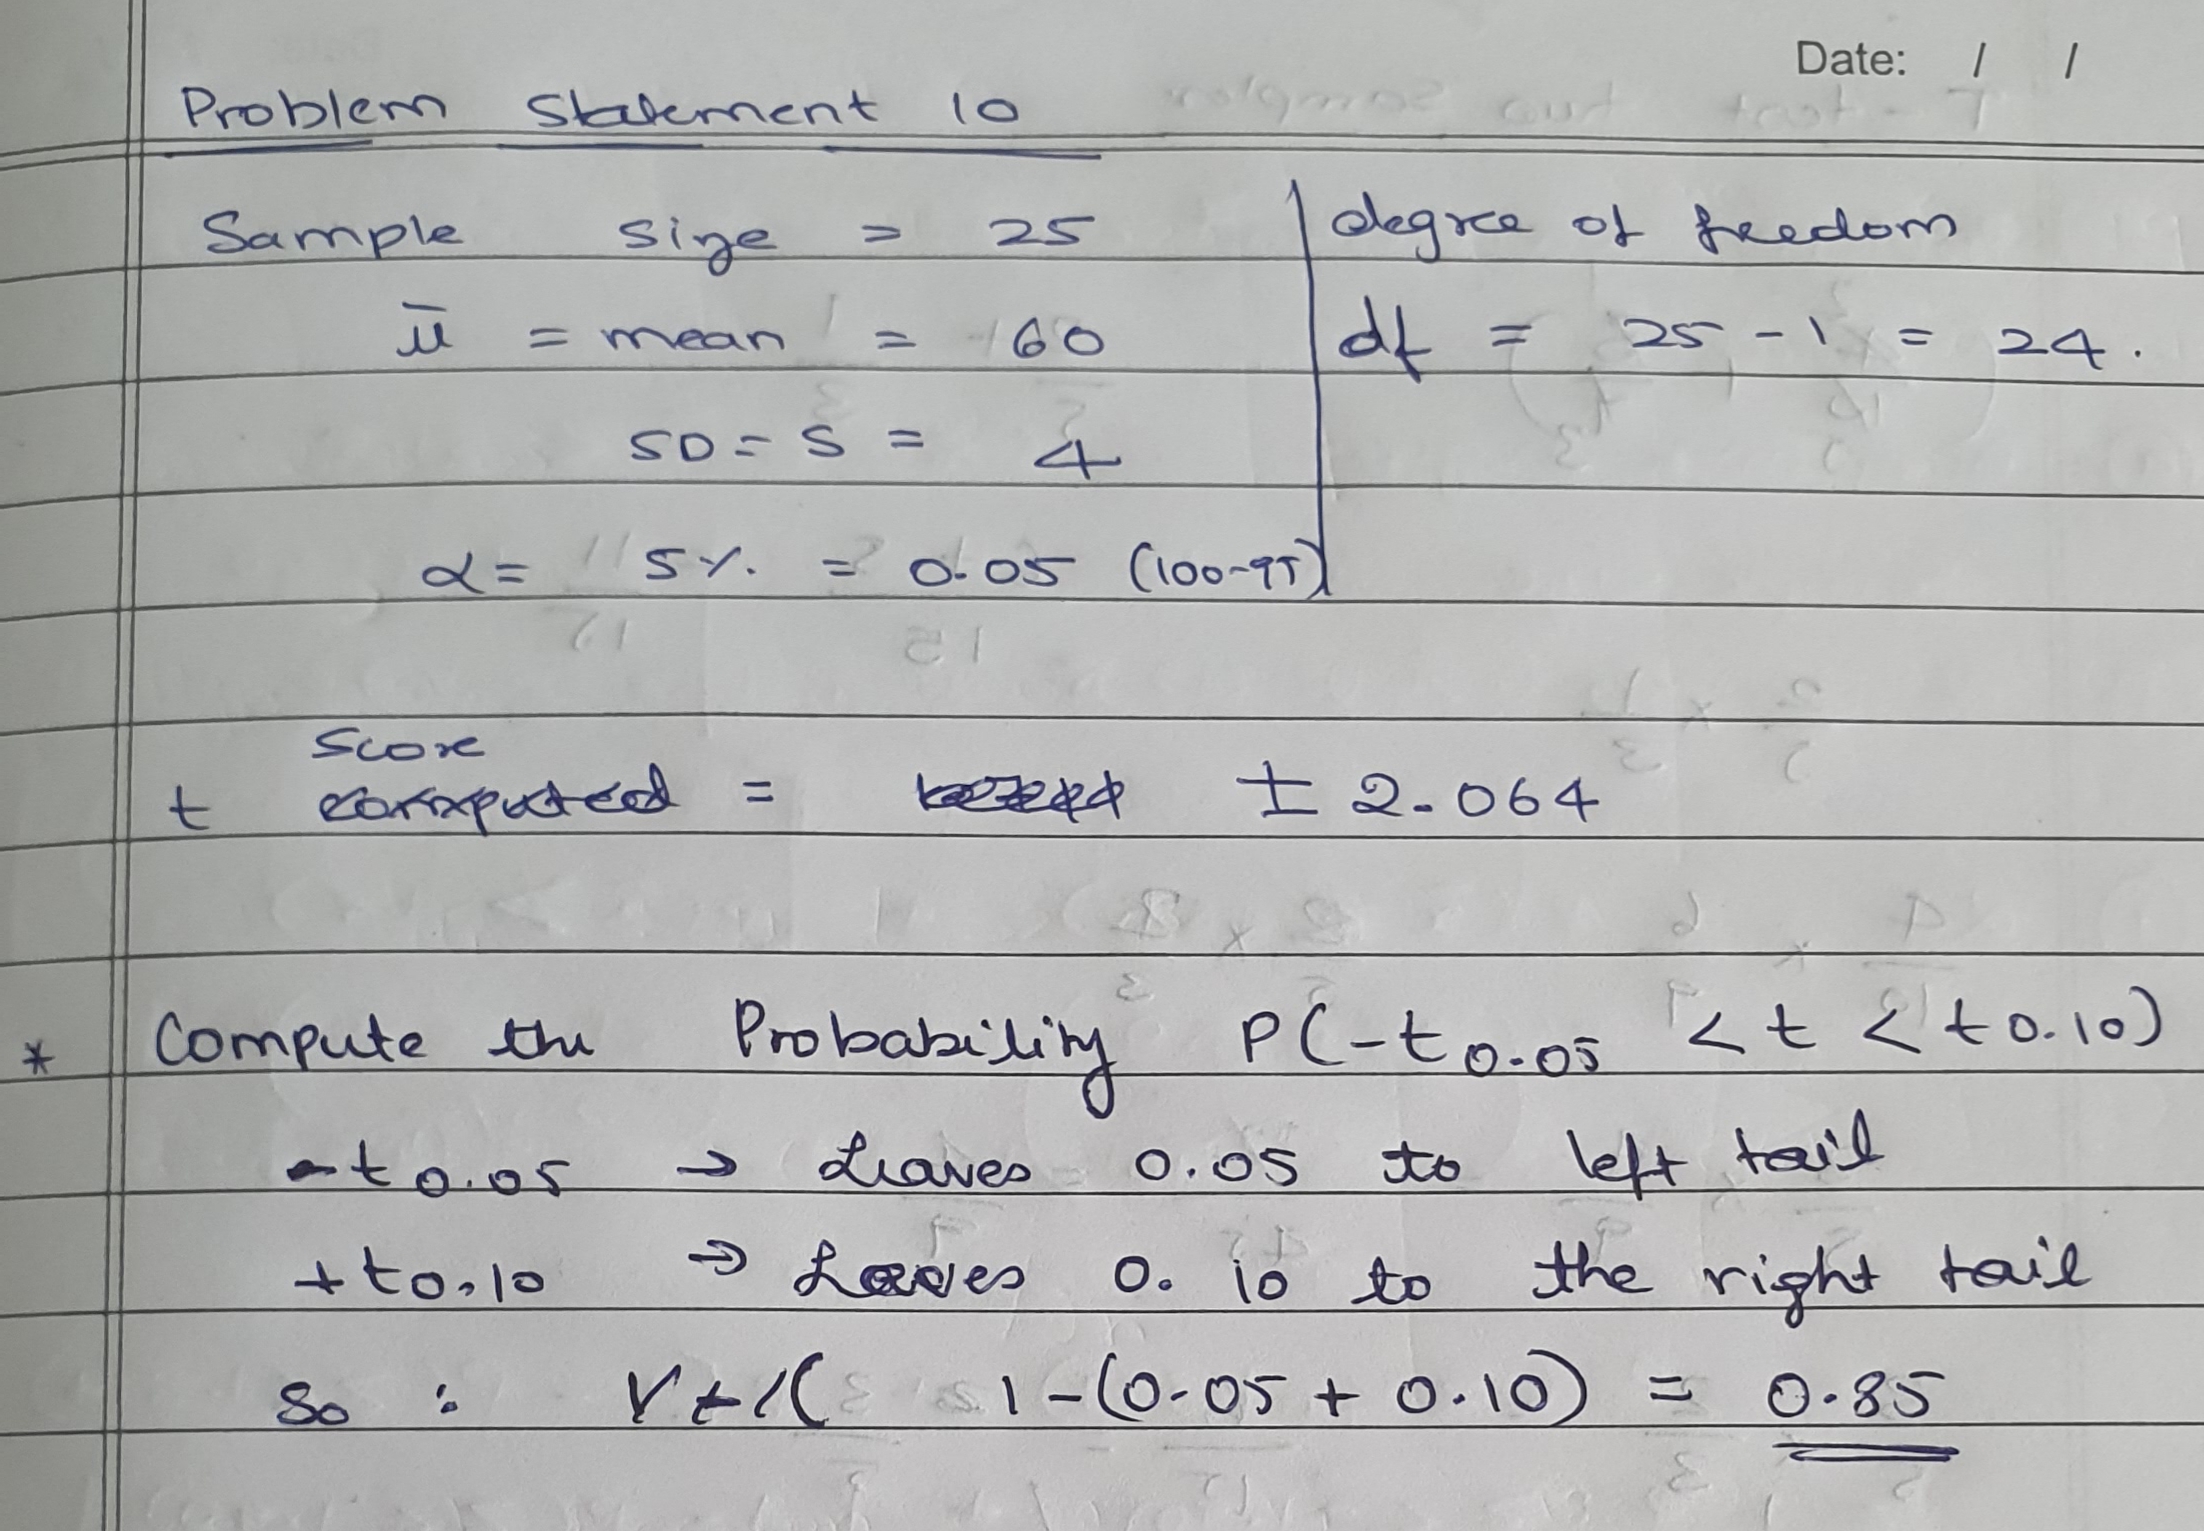 Date: / /
Problem Statement 10
Sample size = 25
ū = mean = 60
SD = S = 4
α = 5% = 0.05 (100-95)
degree of freedom
df = 25 - 1 = 24.
score
t computed = ± 2.064
* Compute the Probability P(-t0.05 < t < t0.10)
-t0.05 → Leaves 0.05 to left tail
+t0.10 → Leaves 0.10 to the right tail
So : 1-(0.05 + 0.10) = 0.85